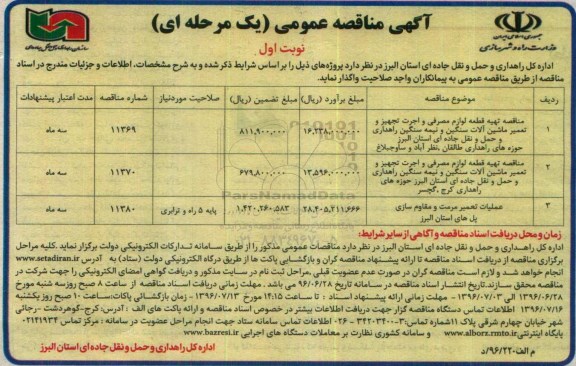 آگهی مناقصه عمومی (یک مرحله ای)
نوبت اول
وزارت راه و شهرسازی
اداره کل راهداری و حمل و نقل جاده ای استان البرز در نظر دارد پروژه‌های ذیل را بر اساس شرایط ذکر شده و به شرح مشخصات، اطلاعات و جزئیات مندرج در اسناد
مناقصه از طریق مناقصه عمومی به پیمانکاران واجد صلاحیت واگذار نماید.
ردیف موضوع مناقصه مبلغ برآورد (ریال) مبلغ تضمین (ریال) صلاحیت موردنیاز شماره مناقصه مدت اعتبار پیشنهادات
۱ مناقصه تهیه قطعه لوازم مصرفی و اجرت تجهیز و
تعمیر ماشین آلات سنگین و نیمه سنگین راهداری
و حمل و نقل جاده ای استان البرز
حوزه های راهداری طالقان ،نظر آباد و ساوجبلاغ
۱۶،۲۳۸،۰۰۰،۰۰۰ ۸۱۱،۹۰۰،۰۰۰ ۱۱۳۶۹ سه ماه
۲ مناقصه تهیه قطعه لوازم مصرفی و اجرت تجهیز و
تعمیر ماشین آلات سنگین و نیمه سنگین راهداری
و حمل و نقل جاده ای استان البرز حوزه های
راهداری کرج ،گچسر
۱۳،۵۹۶،۰۰۰،۰۰۰ ۶۷۹،۸۰۰،۰۰۰ ۱۱۳۷۰ سه ماه
۳ عملیات تعمیر مرمت و مقاوم سازی
پل های استان البرز
۲۸،۴۰۵،۲۱۱،۶۶۶ ۱،۴۲۰،۲۶۰،۵۸۳ پایه ۵ راه و ترابری ۱۱۳۸۰ سه ماه
زمان و محل دریافت اسناد مناقصه و آگاهی از سایر شرایط:
اداره کل راهداری و حمل و نقل جاده ای استان البرز در نظر دارد مناقصات عمومی مذکور را از طریق سامانه تدارکات الکترونیکی دولت برگزار نماید. کلیه مراحل
برگزاری مناقصه از دریافت اسناد مناقصه تا ارائه پیشنهاد مناقصه گران و بازگشایی پاکت ها از طریق درگاه الکترونیکی دولت (ستاد) به آدرس www.setadiran.ir
انجام خواهد شد و لازم است مناقصه گران در صورت عدم عضویت قبلی ،مراحل ثبت نام در سایت مذکور و دریافت گواهی امضای الکترونیکی را جهت شرکت در
مناقصه محقق سازند.تاریخ انتشار اسناد مناقصه در سامانه تاریخ ۹۶/۰۶/۲۸ می باشد. مهلت زمانی دریافت اسناد مناقصه از ساعت ۸ صبح روز سه شنبه مورخ
۱۳۹۶/۰۶/۲۸ الی ۱۳۹۶/۰۷/۰۳ - مهلت زمانی ارائه پیشنهاد اسناد : تا ساعت ۱۴:۱۵ مورخ ۱۳۹۶/۰۷/۱۳ - زمان بازگشائی پاکات:ساعت ۱۰ صبح روز یکشنبه
۱۳۹۶/۰۷/۱۶ اطلاعات تماس دستگاه مناقصه گزار جهت دریافت اطلاعات بیشتر در خصوص اسناد مناقصه و ارائه پاکت های الف : آدرس: کرج-گوهردشت -رجائی
شهر خیابان چهارم شرقی پلاک ۱۱شماره تماس:۳-۳۴۲۰۳۴۰۰ - ۰۲۶ اطلاعات تماس سامانه ستاد جهت انجام مراحل عضویت در سامانه : مرکز تماس ۰۲۱۴۱۹۳۴
پایگاه اینترنتی www.alborz.rmto.ir و سامانه کشوری نظارت بر معاملات دستگاه های اجرایی www.bazresi.ir
اداره کل راهداری و حمل و نقل جاده ای استان البرز
م الف-۹۶/۲۲/د
ParsNamadData